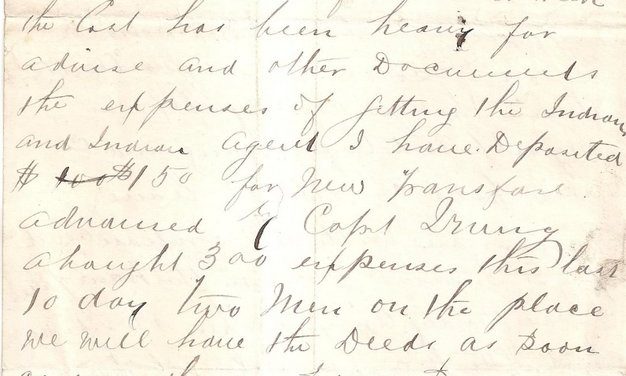 the Cost has been heavy for
advise and other Documents
the expenses of getting the Indians
and Indian Agent I have Deposited
$ 100 $150 for New Transfare
advanced by Capt Irving
abought 300 expenses this last
10 day two Men on the place
we will have the Deeds as soon